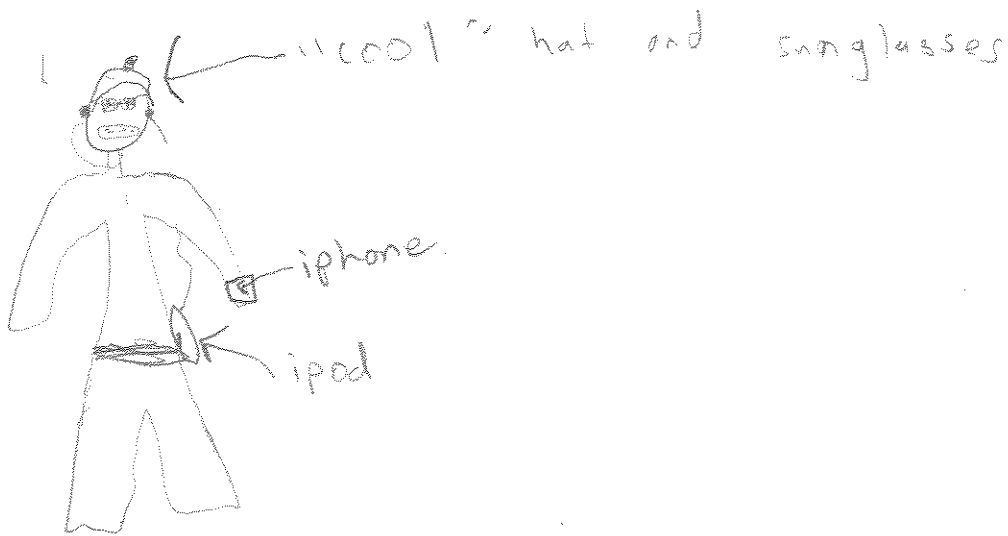 "cool" hat and sunglasses
iphone
ipod